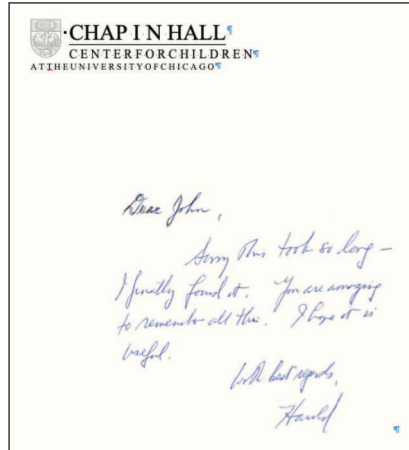 CHAPIN HALL
CENTER FOR CHILDREN
AT THE UNIVERSITY OF CHICAGO
Dear John,
Sorry this took so long –
I finally found it. You are amazing
to remember all this. I hope it is
useful.
with best regards,
Harold